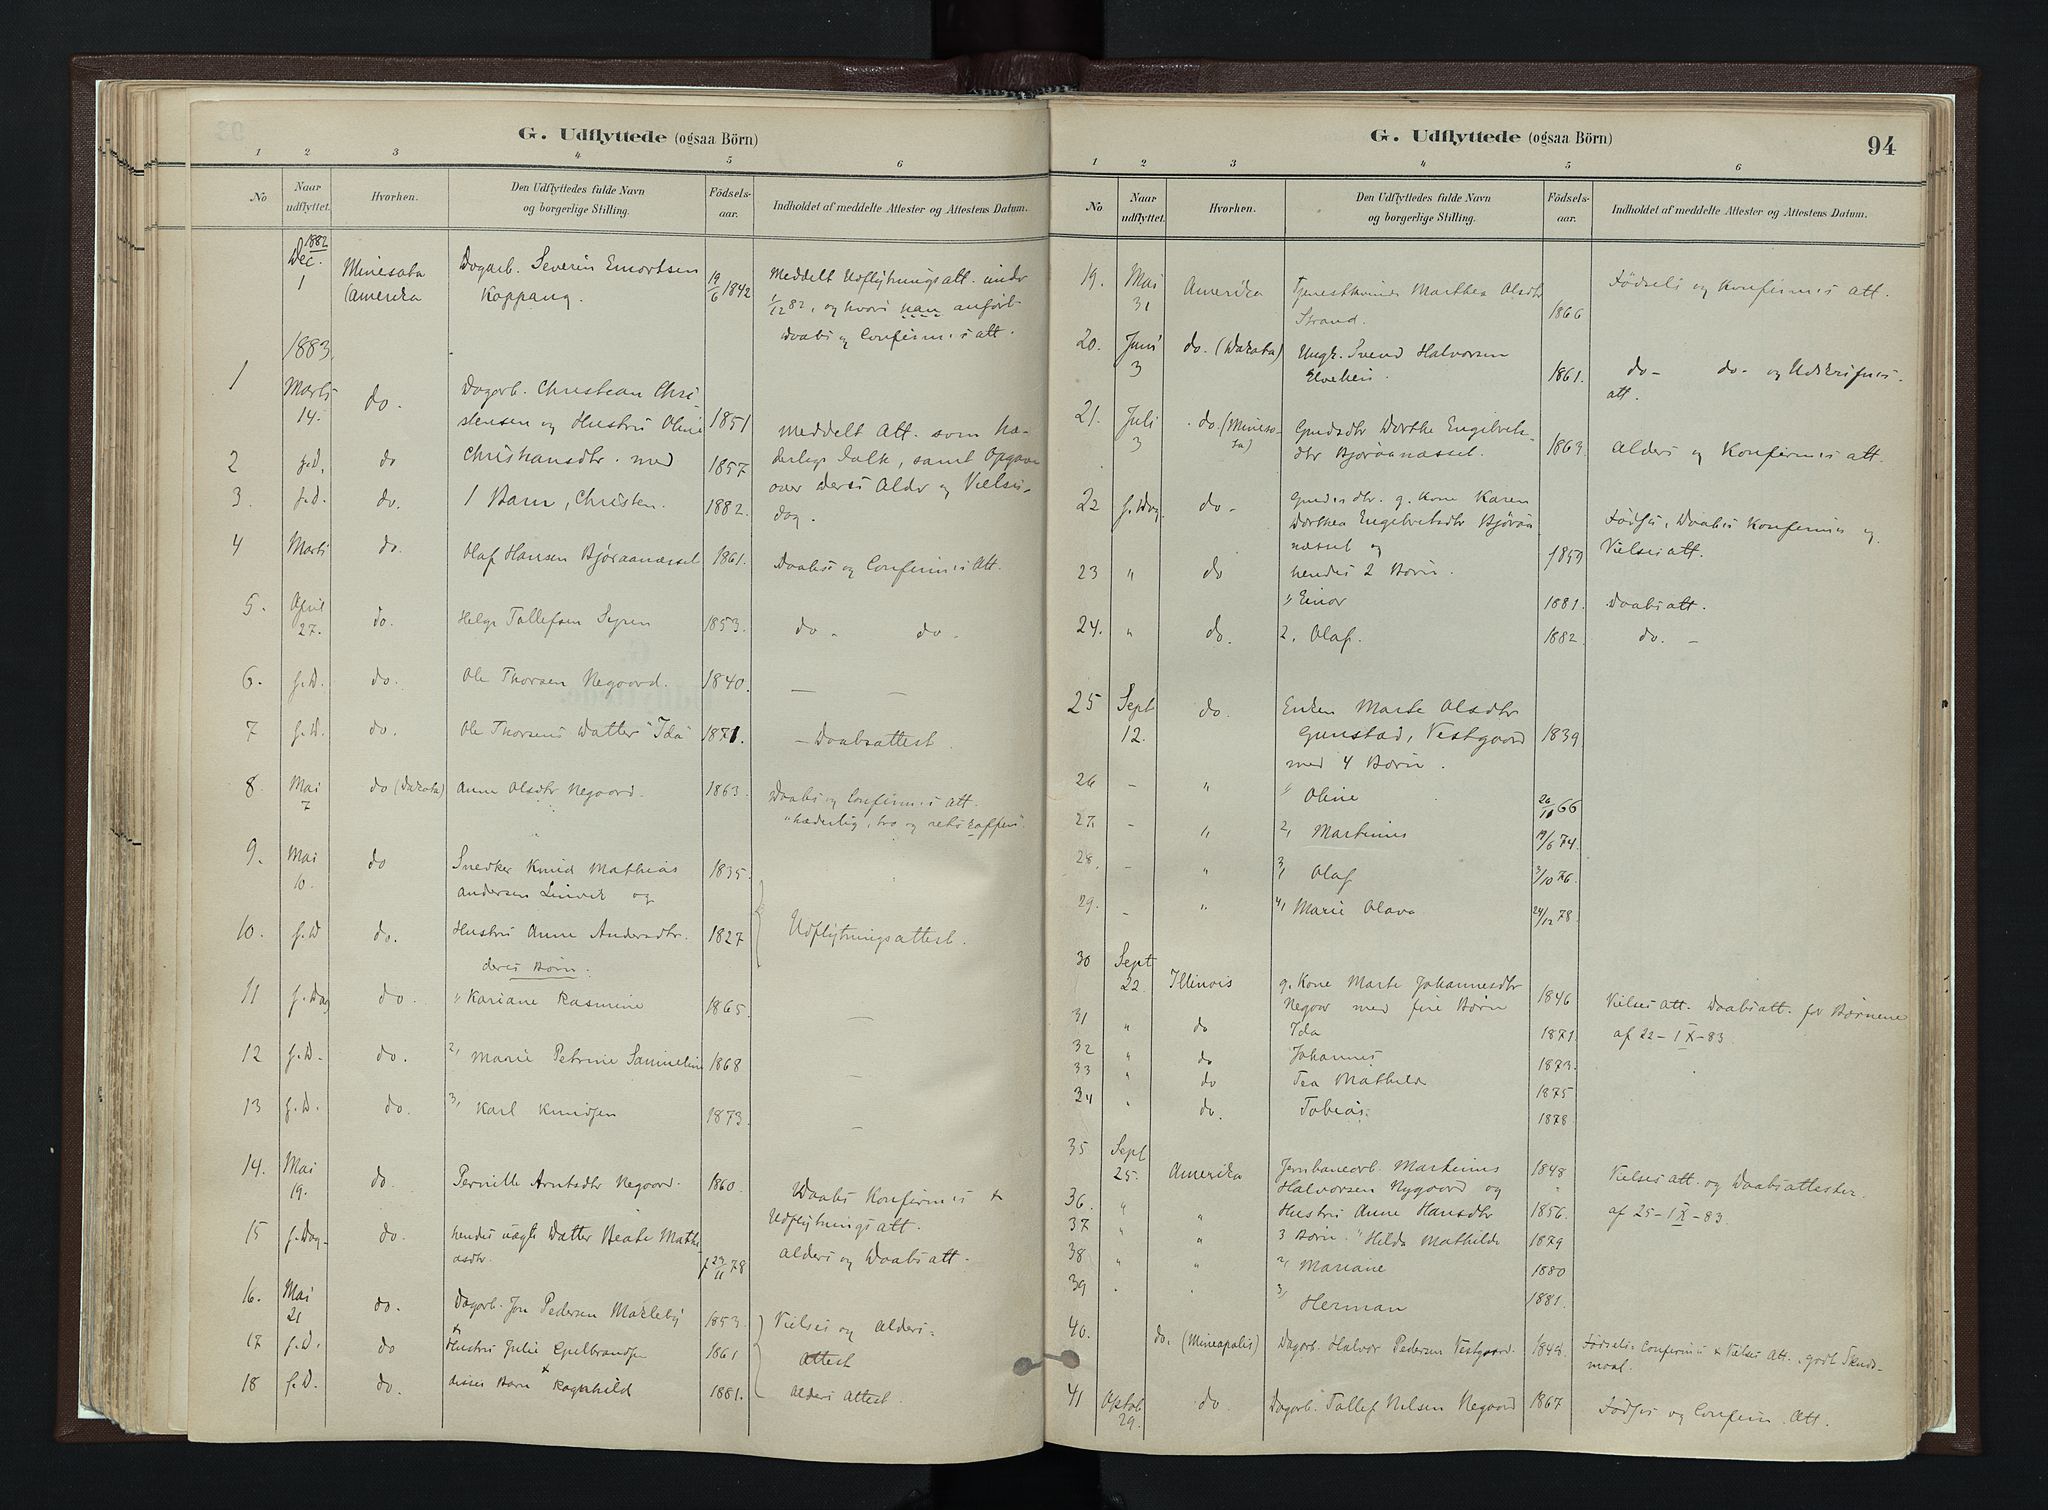 G. Udflyttede (ogsaa Börn)
1 2 3 4 5 6
No Naar udflyttet. Hvorhen. Den Udflyttedes fulde Navn og borgerlige Stilling. Födsels-aar. Indholdet af meddelte Attester og Attestens Datum.
1882
Dec. 1 Minesota Dagarb. Severin Emortsen 19/6 1842 Meddelt Udflytningsatt. under
(Amerika Koppang. 1/12 82, og hvori han anført
Daabs og Confirm.s att.
1883.
1 Marts 14. do. Dagarb. Christian Chri
stensen og Hustru Oline 1851 Meddelt Att. som hæ-
2 s.D. do Christiansdtr. med 1857 derlige Folk, samt Opgave
3. s.D. do. 1 Barn, Christen. 1882. over deres Alder og Vielses-
dag.
4 Marts do. Olaf Hansen Bjøraanæsset 1861. Daabs og Confirm.s Att.
5. April 27. do. Helge Tollefsen Syren 1853. do - do -
6. s.D. do. Ole Thorsen Negaard. 1840. — —
7 s.D. do. Ole Thorsens Datter "Ida" 1871. — Daabsattest.
8. Mai 7 do (Dakota) Anne Olsdtr Negaard. 1863. Daabs og Confirm.s Att.
"hæderlig, tro og retskaffen".
9. Mai 10. do Snedker Knud Mathias 1835.
Andersen Linvik og
10. s.D do. Hustru Anne Andersdtr. 1827 Udflytningsattest.
deres Børn:
11 s.Dag do. 1, Kariane Rasmine 1865. —
12 s.D. do. 2, Marie Petrine Sammeline 1868 —
13 s.D. do. 3, Karl Knudsen 1873. —
14. Mai 19. do. Pernille Arntsdtr Negaard. 1860. Daabs Konfirm.s +
Udflytnings att.
15 s.Dag- do. hendes uægte Datter Beate Mathi
asdtr. f 23/11 78 Alders og Daabs att.
16. Mai 21 do. Dagarb. Jon Pedersen Makleby 1853. Vielses og Alders-
17 s.D. do + Hustru Julie Gulbrandsen 1861 Attest
18 s.D. do. disses Barn + Ragnhild 1881. Alders Attest.
G. Udflyttede (ogsaa Börn) 94
1 2 3 4 5 6
No Naar udflyttet. Hvorhen. Den Udflyttedes fulde Navn og borgerlige Stilling. Födsels-aar. Indholdet af meddelte Attester og Attestens Datum.
19. Mai 31 Amerika Tjenestkvinde Marthea Olsdtr Fødsels og Konfirm.s att.
Strand. 1866
20. Juni 3 do. (Dakota) Ungk. Svend Halvorsen
Elveheii. 1861. do- do- og Udskrifnis-
att.
21. Juli 3 do (Mineso-ta) Gmdsdtr Dorthe Engebrets-
dtr Bjøraanæsset. 1863. Alders og Konfirm.s att.
22 s.Dag do- Gmdsdtr. g. Kone Karen
Dorthea Engebretsdtr Bjøraa Fødses, Daabs Konfirm.s og
næsset og 1859 Vielses att.
23 " do hendes 2 Børn.
1, Einar 1881. Daabs att.
24. " do. 2, Olaf. 1882 do. -
25 Sept 12. do. Enken Marte Olsdtr
Gunstad, Vestgaard 1839.
med 4 Børn.
26 - " 1, Oline 26/11 66
27. - " 2, Martinus 19/6 74.
28. - " 3, Olaf 3/10 76.
29. - " 4, Marie Olava 24/12 78
30 Sept 22. Illinois g. Kone Marte Johannesdtr 1846 Vielses Att. Daabs att. for Børnene
Negaar med fire Børn
31 " do Ida 1871. af 22-IX-83.
32 " do Johannes 1873.
33 " do Tea Mathilde 1875
34 " do. Tobias. 1878.
35 Sept 25. Amerika Jernbanearb. Martinus 1848 Vielses att. og Daabsattester
Halvorsen Nygaard og
36. " " Hustru Anne Hansdtr 1856. af 25-IX-83.
37 " " 3 Børn. 1, Hilda Mathilde 1879
38 " " 2, Mariane 1880
39 " " 3, Herman 1881.
40. do. (Mineapolis) Dagarb. Halvor Pedersen Vestgaard. 1848. Fødsels- Confirm.s + Vielses Att., godt Skuds-
maal.
41 Oktob 29. do. Dagarb. Tollef Nilsen Negaard 1867 Fødses og Confirm. Att.